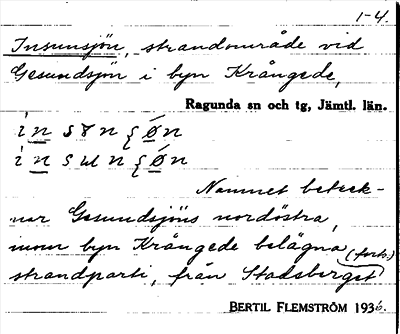 1-4.
Insunsjön, strandområde vid
Gesundsjön i byn Krångede,
Ragunda sn och tg, Jämtl. län.
Namnet beteck-
nar Gesundsjöns nordöstra,
inom byn Krångede belägna
strandparti, från Stadsberget
(forts.)
BERTIL FLEMSTRÖM 1936.